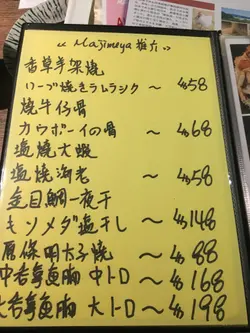 “ Majimeya 推介 ”
香草羊架燒
ハーブ焼きラムラック ～ $58
燒牛仔骨
カウボーイの骨 ～ $68
塩燒大蝦
塩焼海老 ～ $58
金目鯛一夜干
キンメダイ塩干し ～ $148
明太子燒 ～ $88
中吞拿魚腩 中トロ ～ $168
大吞拿魚腩 大トロ ～ $198